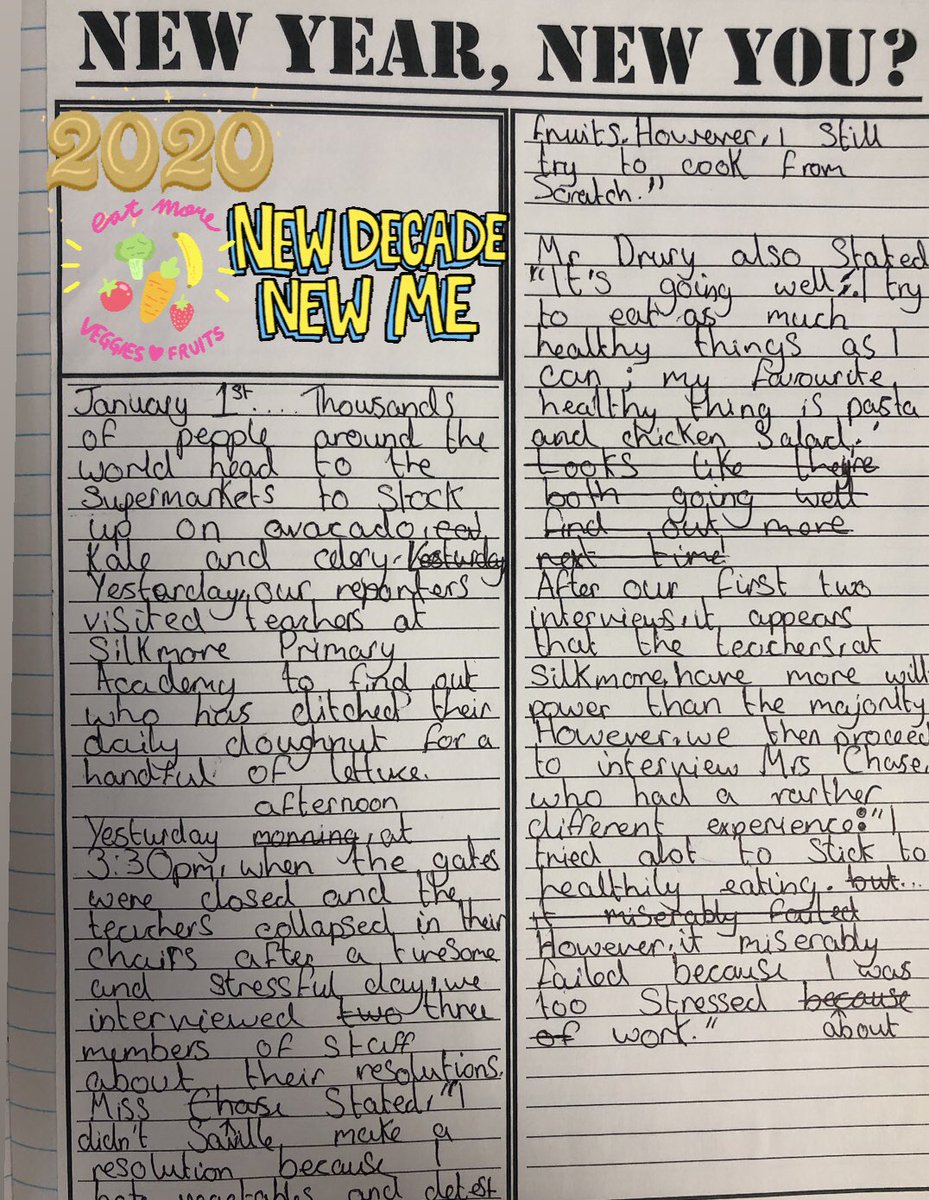 NEW YEAR, NEW YOU?
2020
eat more
VEGGIES FRUITS
NEW DECADE
NEW ME
January 1st.... Thousands
of people around the
world head to the
supermarkets to Stock
up on avacado, eat
Kale and celery. Yesturday
Yesterday, our reporters
visited teachers at
Silkmore Primary
Academy to find out
who has ditched their
daily doughnut for a
handful of lettuce.
afternoon
Yesturday morning, at
3:30pm, when the gates
were closed and the
teachers collapsed in their
chairs after a tiresome
and stressful day, we
interviewed two three
members of staff
about their resolutions.
Miss Chase Stated, "I
didn't Saville make a
resolution because I
hate vegetables and detest
fruits. However, I Still
try to cook from
Scratch."
Mr Drury also Stated
"It's going well, I try
to eat as much
healthy things as I
can; my favourite
healthy thing is pasta
and chicken Salad."
Looks like they're
both going well
find out more
next time!
After our first two
interviews, it appears
that the teachers, at
Silkmore, have more will
power than the majority
However, we then proceed
to interview Mrs Chase,
who had a rarther
different experience: "I
tried alot to Stick to
healthily eating. but...
it miserably failed
However, it miserably
failed because I was
too Stressed because
of work." about